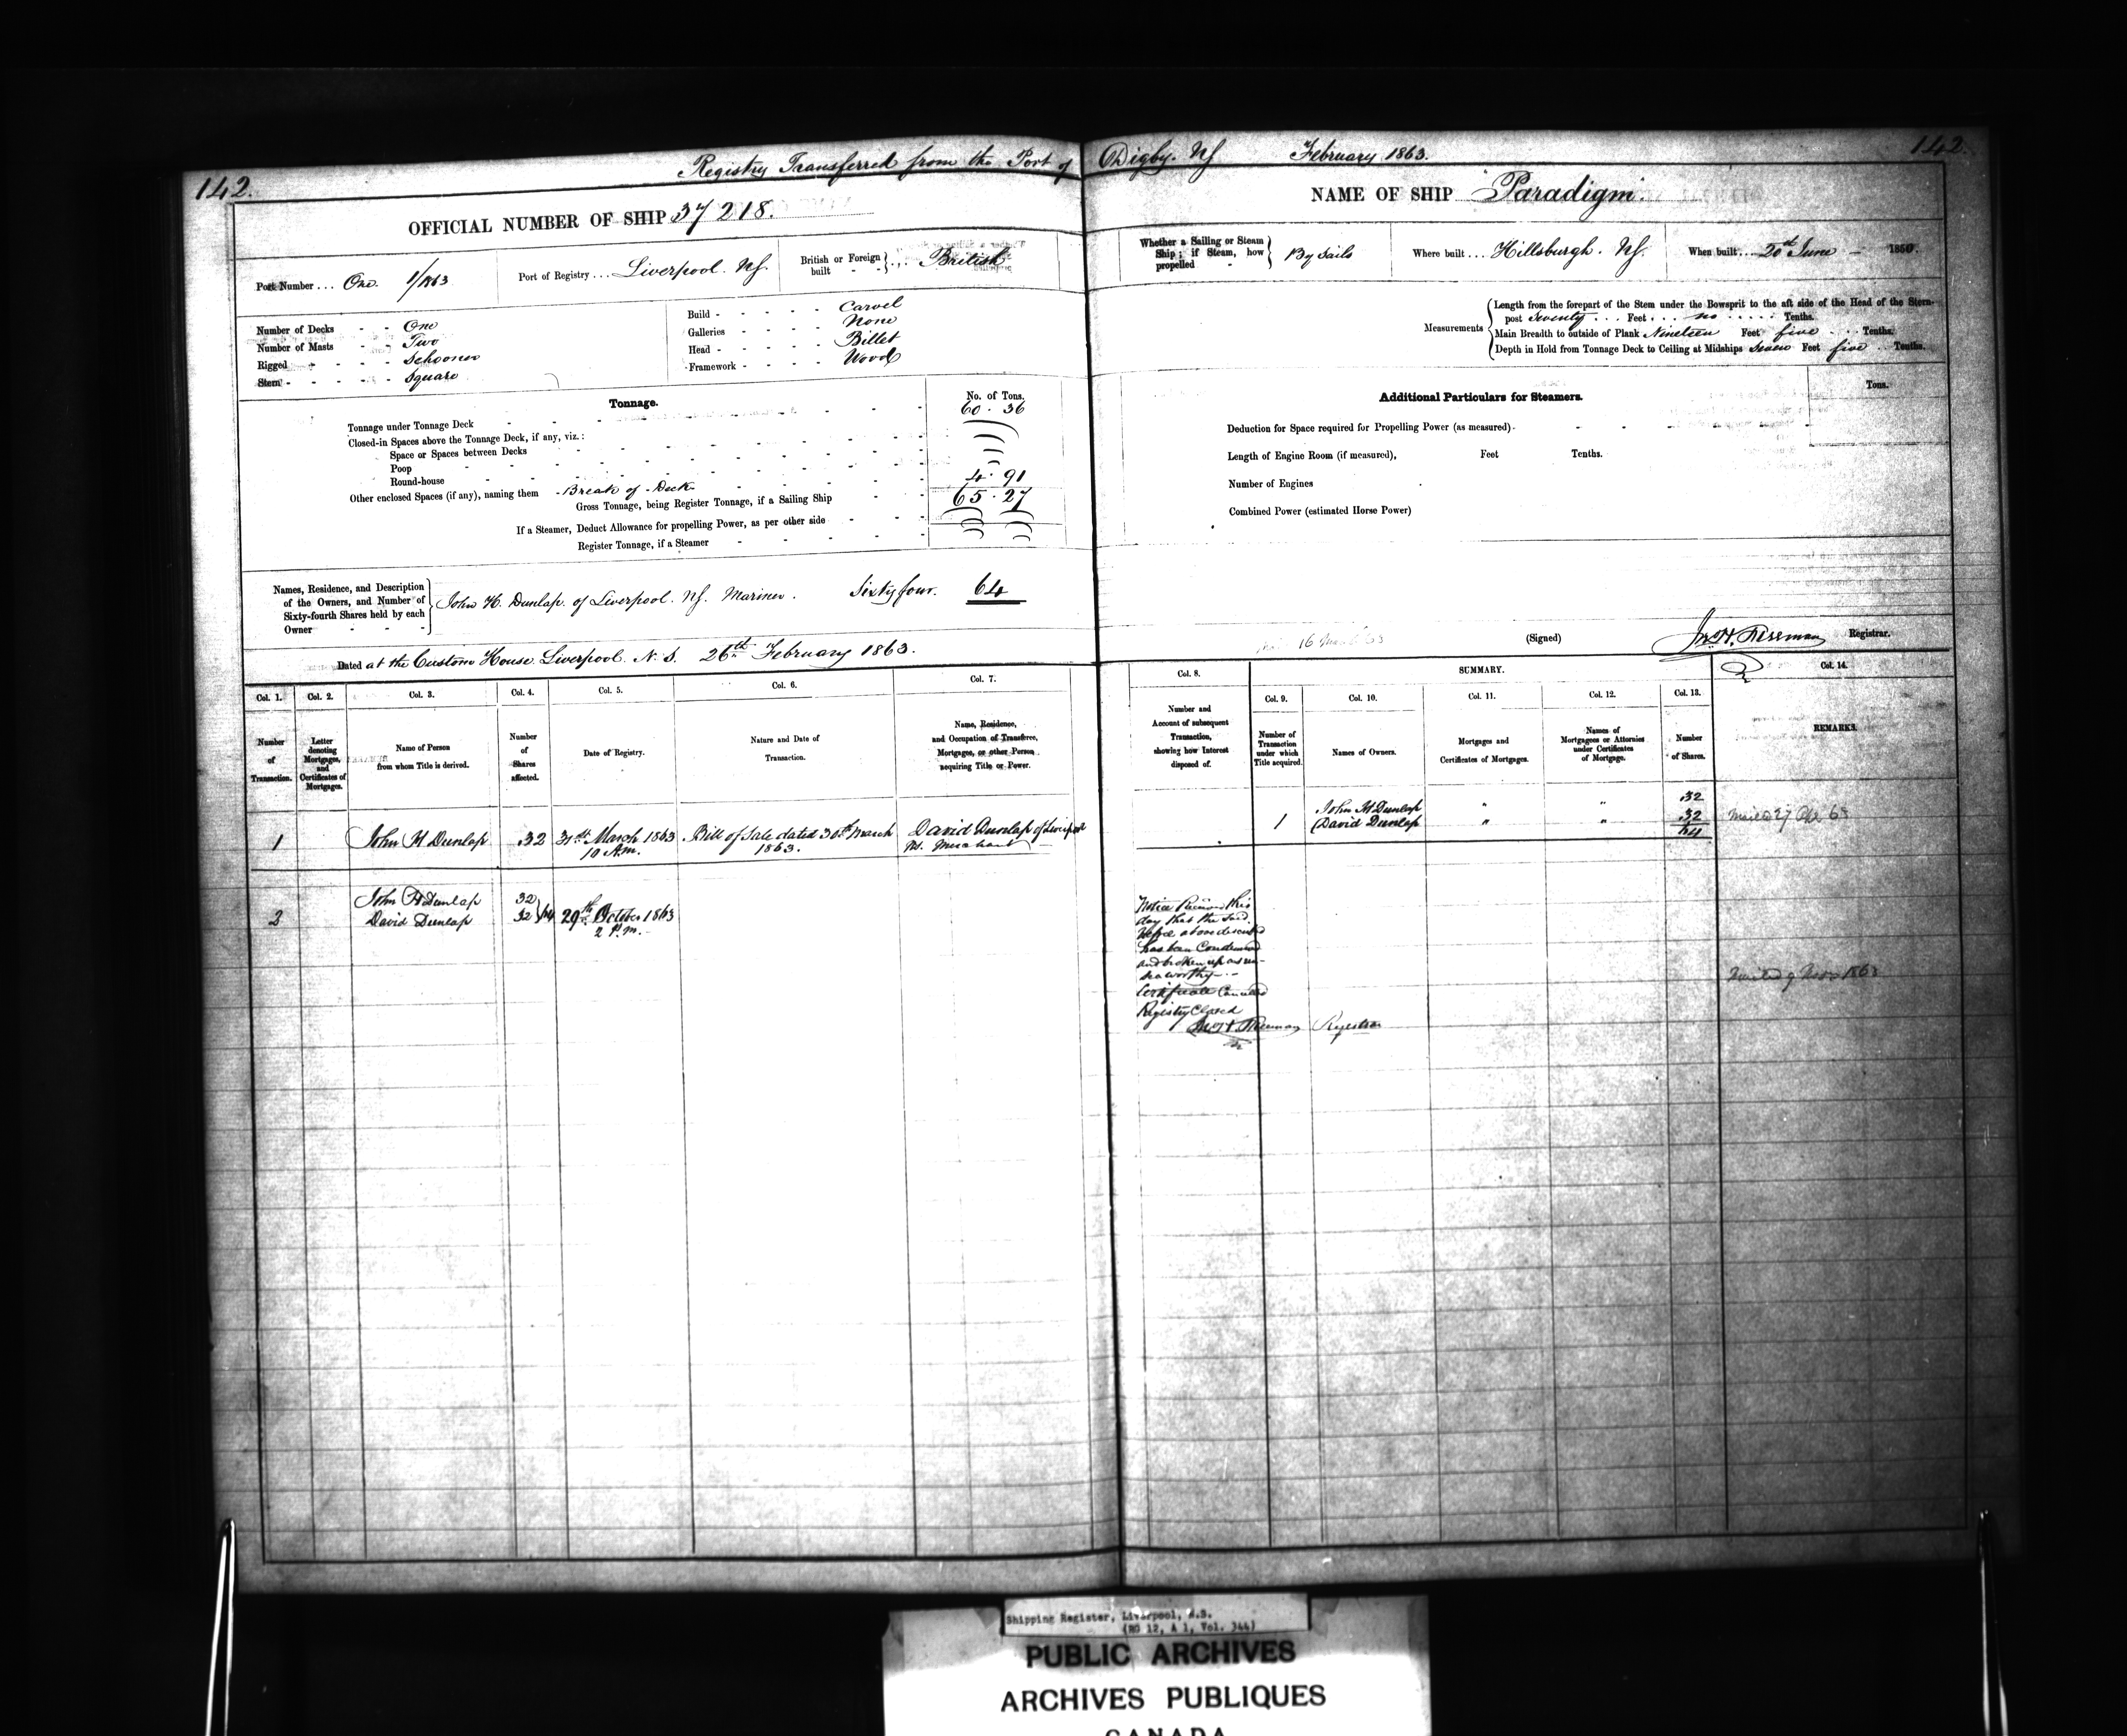 142.
Registry Transferred from the Port of Digby. NS February 1863.
142.
OFFICIAL NUMBER OF SHIP 37218.
NAME OF SHIP Paradigm.
Port Number ... One. 1/1863
Port of Registry ... Liverpool. NS.
British or Foreign built - - ... British
Whether a Sailing or Steam Ship; if Steam, how propelled - By Sails
Where built ... Hillsburgh. NS.
When built ... 20th June - 1850.
Number of Decks - - One
Number of Masts - - Two
Rigged - - - - Schooner
Stern - - - - - Square
Build - - - - - Carvel
Galleries - - - - None
Head - - - - - Billet
Framework - - - - Wood
Measurements
Length from the forepart of the Stem under the Bowsprit to the aft side of the Head of the Stern-
post Seventy ... Feet ... no ..... Tenths.
Main Breadth to outside of Plank Nineteen Feet five ... Tenths.
Depth in Hold from Tonnage Deck to Ceiling at Midships Seven Feet five .. Tenths.
Tonnage.
No. of Tons.
Tonnage under Tonnage Deck 60. 36
Closed-in Spaces above the Tonnage Deck, if any, viz.:
Space or Spaces between Decks
Poop
Round-house
Other enclosed Spaces (if any), naming them - Break of Deck 4. 91
Gross Tonnage, being Register Tonnage, if a Sailing Ship 65. 27
If a Steamer, Deduct Allowance for propelling Power, as per other side
Register Tonnage, if a Steamer
Additional Particulars for Steamers.
Tons.
Deduction for Space required for Propelling Power (as measured) -
Length of Engine Room (if measured), Feet Tenths.
Number of Engines
Combined Power (estimated Horse Power)
Names, Residence, and Description
of the Owners, and Number of
Sixty-fourth Shares held by each
Owner - - -
John H. Dunlap. of Liverpool. NS. Mariner. Sixty four. 64
Dated at the Custom House Liverpool. N.S. 26th February 1863.
(Signed) Jno H. Freeman Registrar.
Col. 1.
Col. 2.
Col. 3.
Col. 4.
Col. 5.
Col. 6.
Col. 7.
Col. 8.
SUMMARY.
Col. 9.
Col. 10.
Col. 11.
Col. 12.
Col. 13.
Col. 14.
Number
of
Transaction.
Letter
denoting
Mortgages,
and
Certificates of
Mortgages.
Name of Person
from whom Title is derived.
Number
of
Shares
affected.
Date of Registry.
Nature and Date of
Transaction.
Name, Residence,
and Occupation of Transferee,
Mortgagee, or other Person
acquiring Title or Power.
Number and
Account of subsequent
Transaction,
showing how Interest
disposed of.
Number of
Transaction
under which
Title acquired.
Names of Owners.
Mortgages and
Certificates of Mortgages.
Names of
Mortgagees or Attornies
under Certificates
of Mortgage.
Number
of Shares.
REMARKS.
1 John H Dunlap 32 31st March 1863 Bill of Sale dated 30th March David Dunlap of Liverpool
10 A.m. 1863. NS. Merchant
John H Dunlap " " 32
1 David Dunlap " " 32
64
2
John H Dunlap 32
David Dunlap 32 } 64 29th October 1863
2 P.m.
Notice Received this
day that the said
above described
has been Condemned
and broken up as un-
seaworthy -
Certificate Cancelled
Registry Closed
Jno H. Freeman Registrar
Shipping Register, Liverpool, N.S.
(RG 12, A 1, Vol. 344)
PUBLIC ARCHIVES
ARCHIVES PUBLIQUES
CANADA